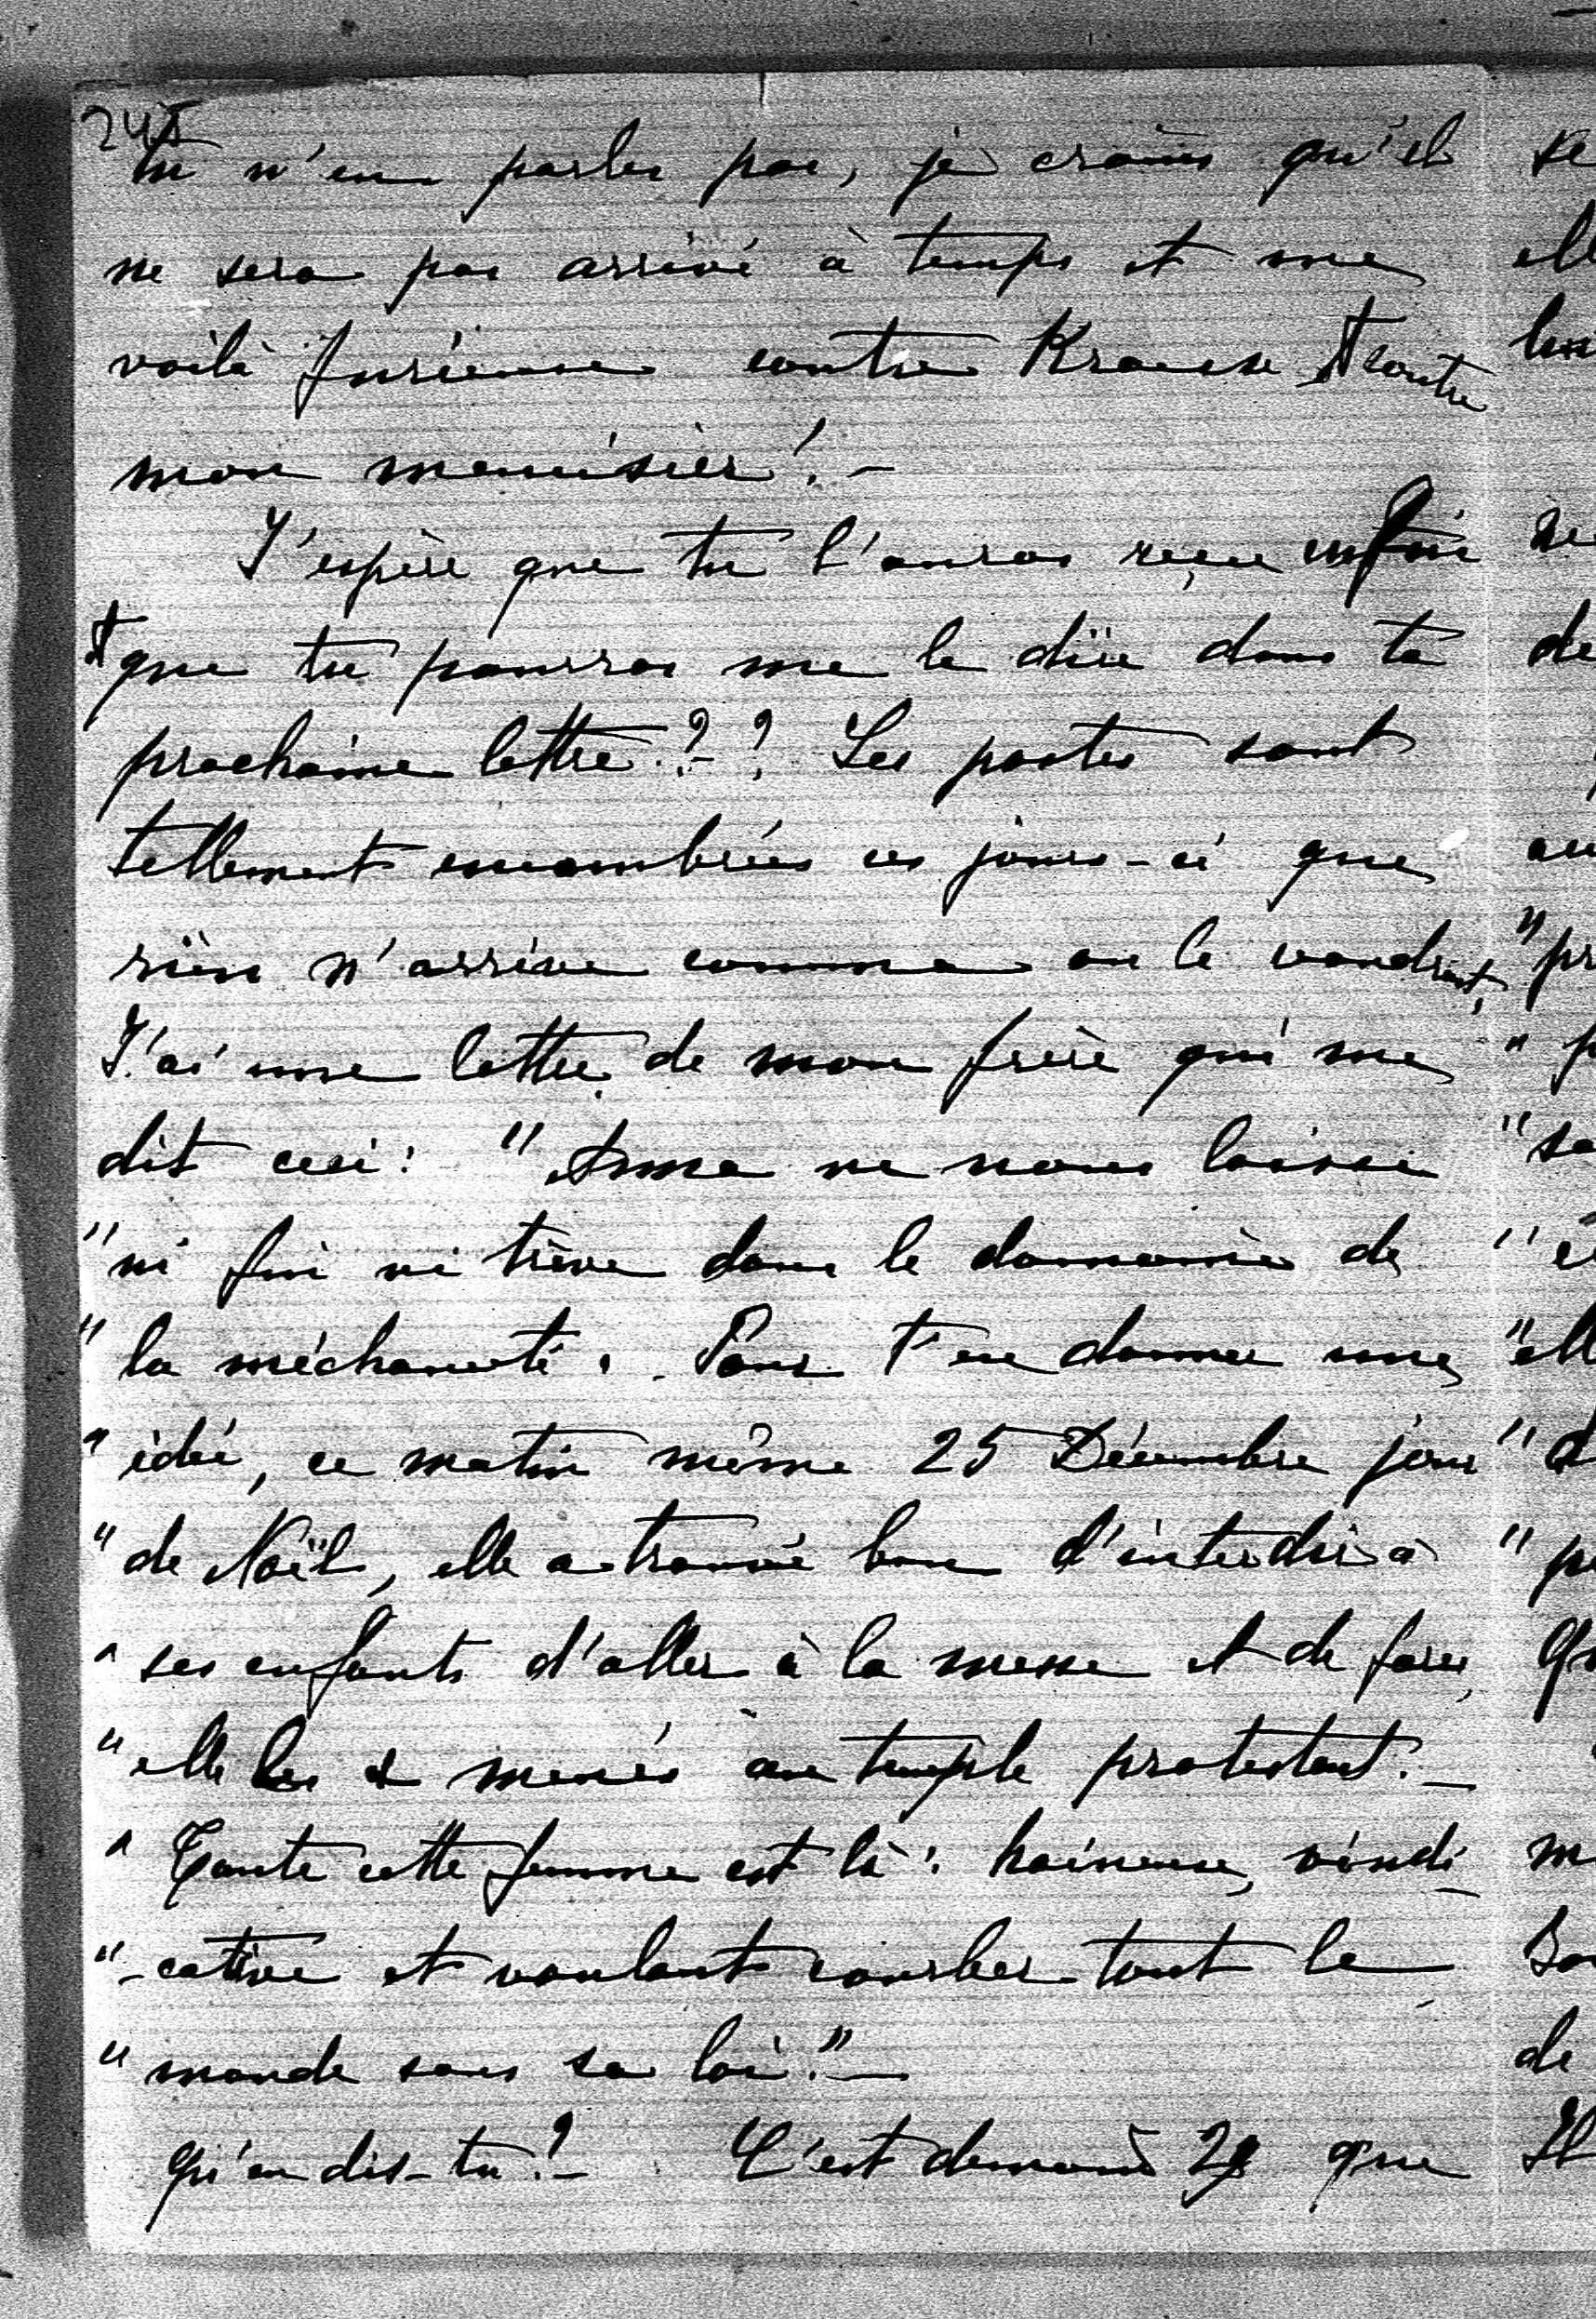 245
tu n'en parles pas, je crains qu'il
ne sera pas arrivé à temps et me
voilà furieuse contre Krause et contre
mon menuisier! -
J'espère que tu l'auras reçue enfin
et que tu pourras me le dire dans ta
prochaine lettre?-? Les postes sont
tellement encombrées ces jours-ci que
rien n'arrive comme on le voudrait,
J'ai une lettre de mon frère qui me
dit ceci: "Anna ne nous laisse
"ni fin ni trève dans le domaine de
"la méchanceté. Pour t'en donner une
"idée, ce matin même 25 Décembre jour
"de Noël, elle a trouvé bon d'interdire à
"ses enfants d'aller à la messe et de force,
"elle les a menés au temple protestant. -
"Toute cette femme est là: haineuse, vindi-
"-cative et voulant courber tout le
"monde sous sa loi." -
Qu'en dis-tu? - C'est demain 28 que